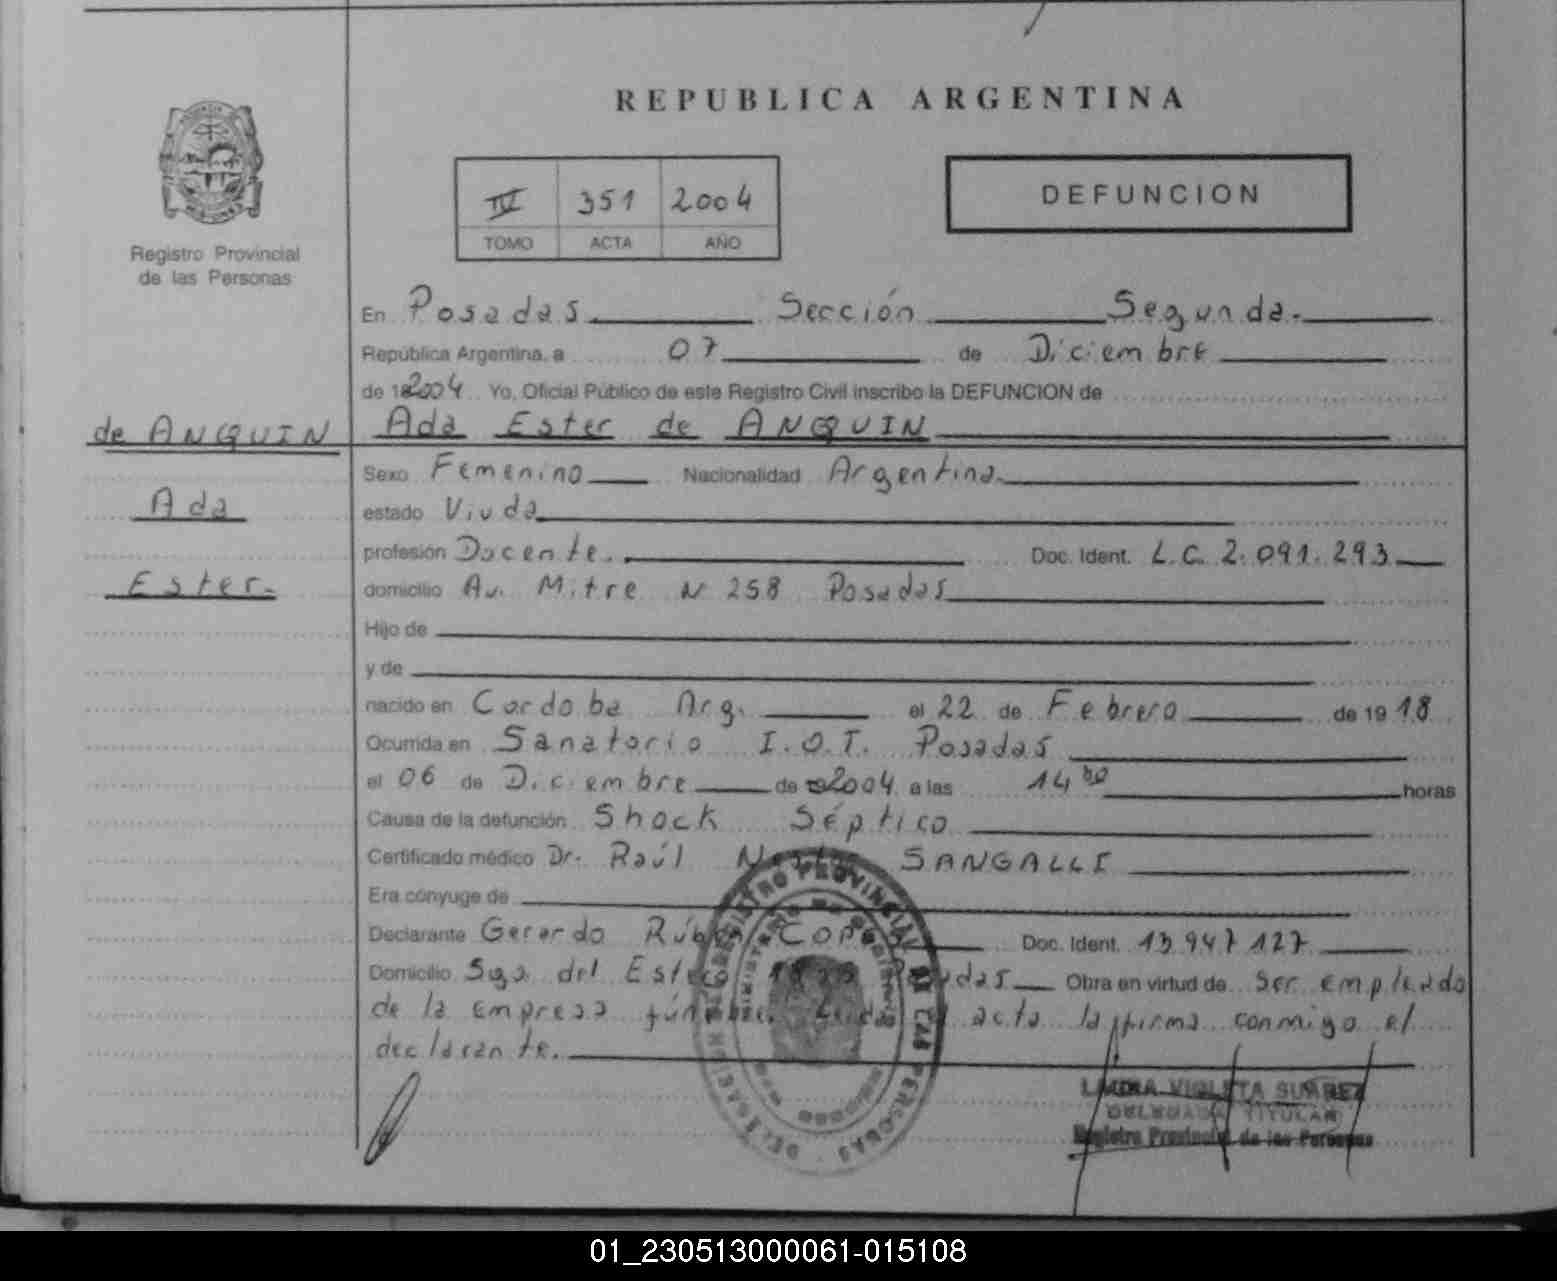 REPUBLICA ARGENTINA
Registro Provincial
de las Personas
IV 351 2004
TOMO ACTA AÑO
DEFUNCION
En Posadas Sección Segunda.
República Argentina, a 07 de Diciembre
de 2004 Yo, Oficial Público de este Registro Civil inscribo la DEFUNCION de
de ANGUIN
Ada
Ester.
Ada Ester de ANGUIN
Sexo Femenino Nacionalidad Argentina.
estado Viuda
profesión Docente. Doc. Ident. L.C. 2.091.293
domicilio Av. Mitre N 258 Posadas
Hijo de
y de
nacido en Cordoba Arg. el 22 de Febrero de 19 18
Ocurrida en Sanatorio I.O.T. Posadas
el 06 de Diciembre de 2004 a las 14 horas
Causa de la defunción Shock Séptico
Certificado médico Dr. Raúl SANGALLI
Era cónyuge de
Declarante Gerardo Rúben Doc. Ident. 13947127
Domicilio Sgo. del Estero Posadas Obra en virtud de Ser empleado
de la empresa fúnebre. Leída el acta la firma conmigo el
declarante.
REGISTRO PROVINCIAL DE LAS PERSONAS
LAURA VIOLETA SUAREZ
DELEGADA TITULAR
Registro Provincial de las Personas
01_230513000061-015108